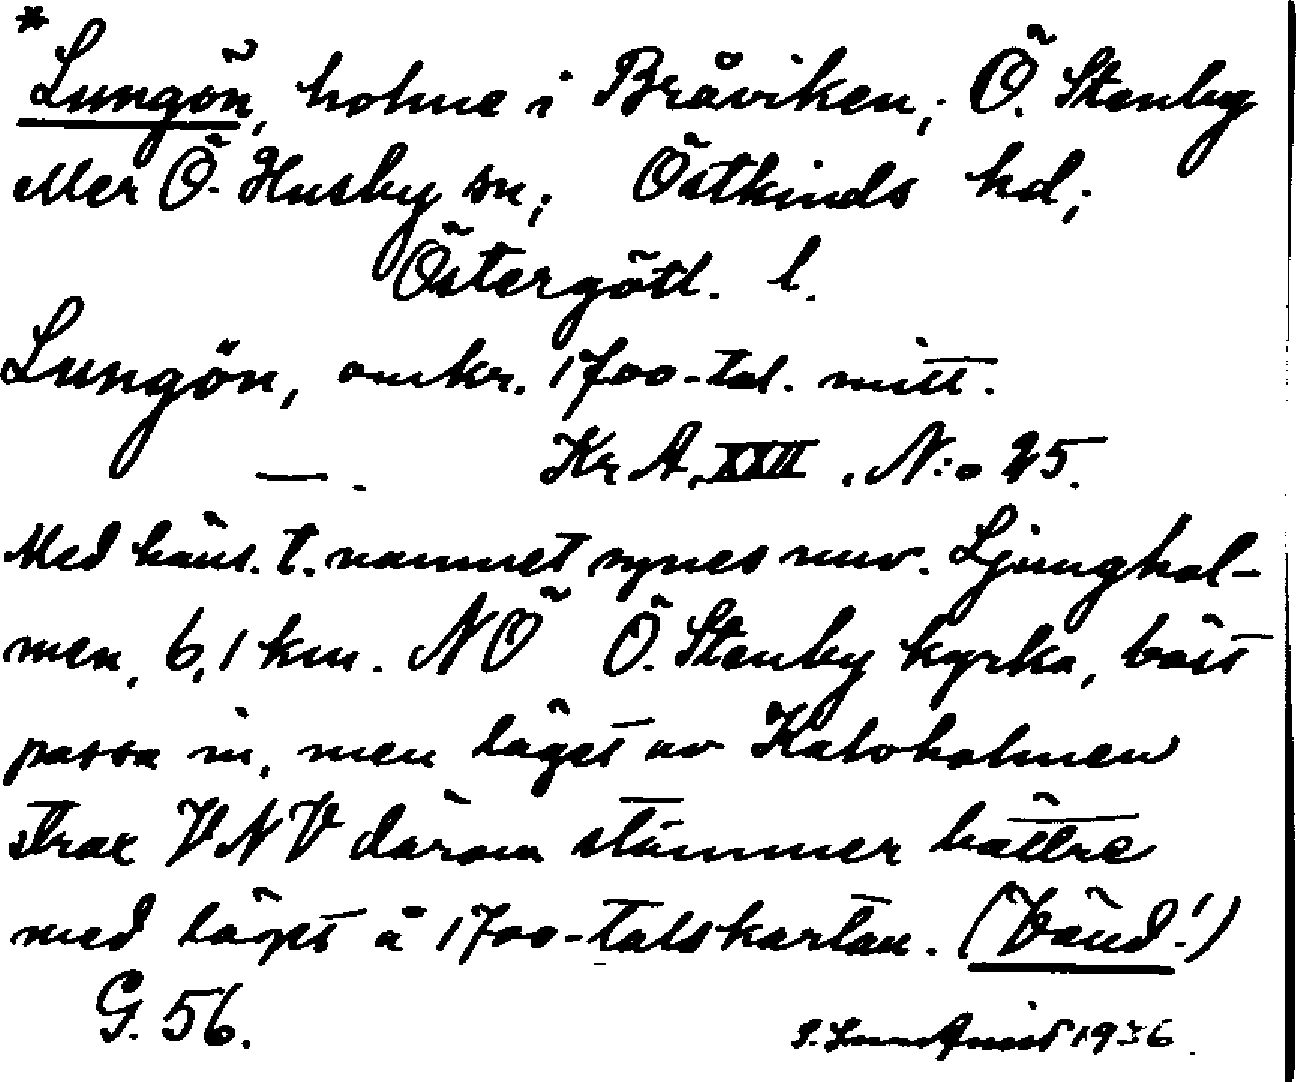 *
Lungön, holme i Bråviken; Ö. Stenby
eller Ö. Husby sn; Östkinds hd;
Östergötl. l.
Lungön, omkr. 1700-tal. mitt.
— . Kr A. XXII. N:o 25.
Med häns. t. namnet synes nuv. Ljunghol-
men, 6,1 km. NÖ Ö. Stenby kyrka, bäst
passa in, men läget av Kalvholmen
strax VNV därom stämmer bättre
med läget å 1700-talskartan. (Vänd!)
G. 56.
1936